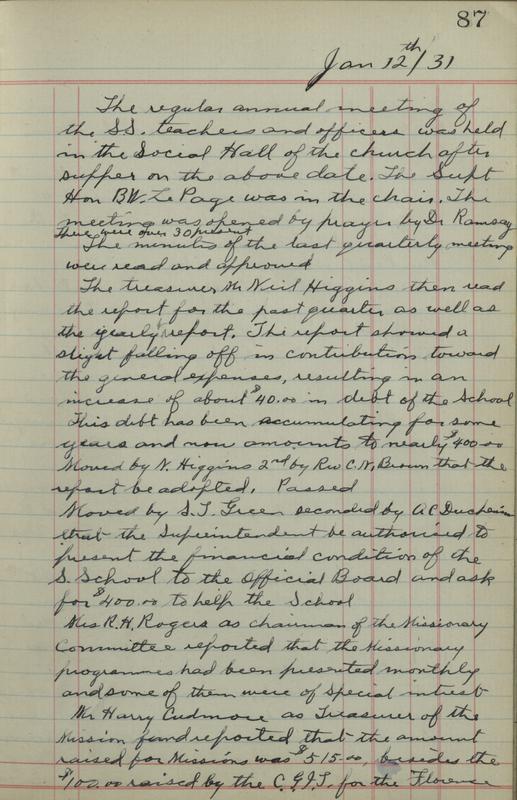 87
Jan 12th/31
The regular annual meeting of
the S.S. teachers and officers was held
in the Social Hall of the church after
supper on the above date. The Supt
Hon B.W. LePage was in the chair. The
meeting was opened by prayer by Dr Ramsay
There were over 30 present
The minutes of the last quarterly meeting
were read and approved
The treasurer Mr Neil Higgins then read
the report for the past quarter as well as
the yearly report. The report showed a
sligt falling off in contribution toward
the general expenses, resulting in an
increase of about $40.00 in debt of the School
This debt has been accumulating for some
years and now amounts to nearly $400.00
Moved by N. Higgins 2nd by Rev C.N. Brown that the
report be adopted. Passed
Moved by S.T. Green seconded by A C Duchemin
that the Superintendent be authorised to
present the financial condition of the
S. School to the Official Board and ask
for $400.00 to help the School
Mrs R.H. Rogers as chairman of the Missionary
Committee reported that the Missionary
programmes had been presented monthly
and some of them were of special intrest
Mr Harry Cudmore as Treasurer of the
Mission fund reported that the amount
raised for Missions was $515.00, besides the
$100.00 raised by the C.G.I.T. for the Florence